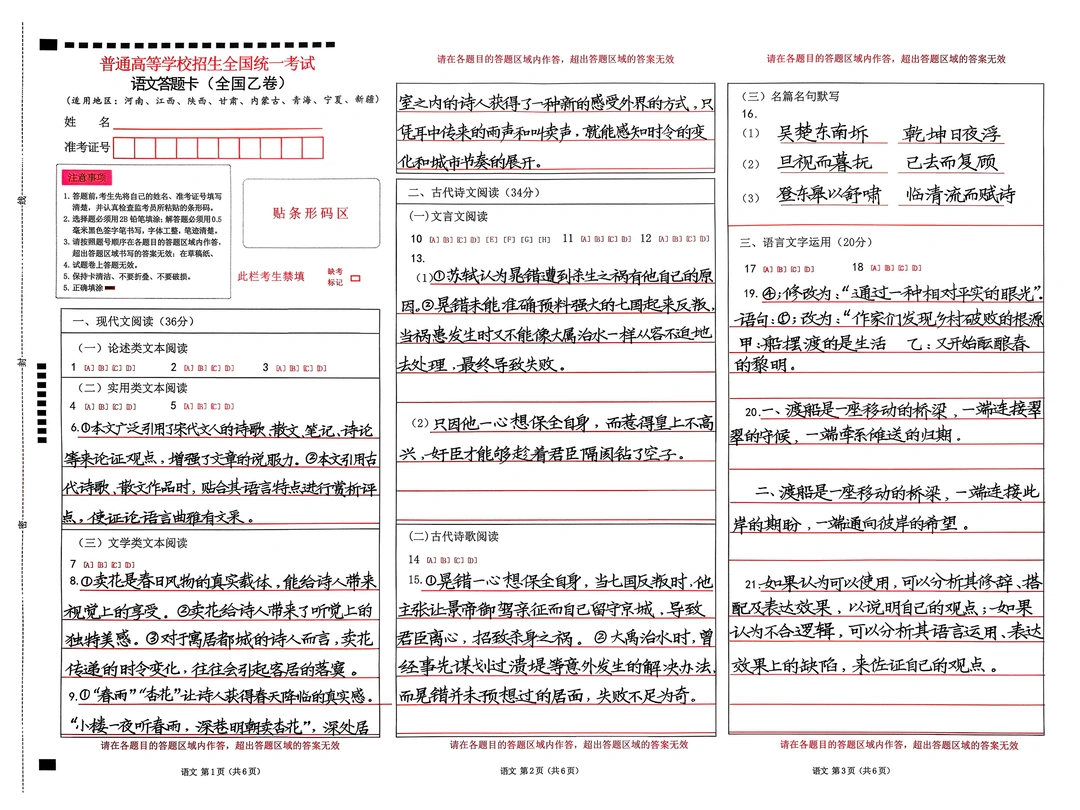 普通高等学校招生全国统一考试
语文答题卡（全国乙卷）
(适用地区：河南、江西、陕西、甘肃、内蒙古、青海、宁夏、新疆)
姓 名
准考证号
注意事项
1.答题前,考生先将自己的姓名、准考证号填写
清楚，并认真检查监考员所粘贴的条形码。
2.选择题必须用2B铅笔填涂;解答题必须用0.5
毫米黑色签字笔书写,字体工整,笔迹清楚。
3.请按照题号顺序在各题目的答题区域内作答,
超出答题区域书写的答案无效；在草稿纸、
4.试题卷上答题无效。
5.保持卡清洁、不要折叠、不要破损。
5.正确填涂
贴条形码区
此栏考生禁填
缺考
标记
线
封
密
一、现代文阅读（36分）
（一）论述类文本阅读
1 [A] [B] [C] [D] 2 [A] [B] [C] [D] 3 [A] [B] [C] [D]
（二）实用类文本阅读
4 [A] [B] [C] [D] 5 [A] [B] [C] [D]
6.①本文广泛引用了宋代文人的诗歌、散文、笔记、诗论
等来论证观点，增强了文章的说服力。②本文引用古
代诗歌、散文作品时，贴合其语言特点进行赏析评
点，使证论语言曲雅有文采。
（三）文学类文本阅读
7 [A] [B] [C] [D]
8.①卖花是春日风物的真实载体，能给诗人带来
视觉上的享受。②卖花给诗人带来了听觉上的
独特美感。③对于寓居都城的诗人而言，卖花
传递的时令变化，往往会引起客居的落寞。
9.①“春雨”“杏花”让诗人获得春天降临的真实感。
“小楼一夜听春雨，深巷明朝卖杏花”，深处居
请在各题目的答题区域内作答，超出答题区域的答案无效
语文 第1页（共6页）
请在各题目的答题区域内作答，超出答题区域的答案无效
室之内的诗人获得了一种新的感受外界的方式，只
凭耳中传来的雨声和叫卖声，就能感知时令的变
化和城市节奏的展开。
二、古代诗文阅读（34分）
(一)文言文阅读
10 [A] [B] [C] [D] [E] [F] [G] [H] 11 [A] [B] [C] [D] 12 [A] [B] [C] [D]
13.
(1)①苏轼认为晁错遭到杀生之祸有他自己的原
因。②晁错未能准确预料强大的七国起来反叛，
当祸患发生时又不能像大属治水一样从容不迫地
去处理，最终导致失败。
(2)只因他一心想保全自身，而惹得皇上不高
兴，奸臣才能够趁着君臣隔阂钻了空子。
(二)古代诗歌阅读
14 [A] [B] [C] [D]
15.①晁错一心想保全自身，当七国反叛时，他
主张让景帝御驾亲征而自己留守京城，导致
君臣离心，招致杀身之祸。②大禹治水时，曾
经事先谋划过溃堤等意外发生的解决办法，
而晁错并未预想过的居面，失败不足为奇。
请在各题目的答题区域内作答，超出答题区域的答案无效
语文 第2页（共6页）
请在各题目的答题区域内作答，超出答题区域的答案无效
(三）名篇名句默写
16.
(1) 吴楚东南坼 乾坤日夜浮
(2) 旦视而暮抚 已去而复顾
(3) 登东皋以舒啸 临清流而赋诗
三、语言文字运用（20分）
17 [A] [B] [C] [D] 18 [A] [B] [C] [D]
19.④;修改为：“通过一种相对平实的眼光”。
语句:①;改为：“作家们发现乡村破败的根源
甲:船摆渡的是生活 乙:又开始酝酿春
的黎明。
20.一、渡船是一座移动的桥梁，一端连接翠
翠的守候，一端牵系傩送的归期。
二、渡船是一座移动的桥梁，一端连接此
岸的期盼，一端通向彼岸的希望。
21.-如果认为可以使用，可以分析其修辞、搭
配及表达效果，以说明自己的观点;-如果
认为不合逻辑，可以分析其语言运用、表达
效果上的缺陷，来佐证自己的观点。
请在各题目的答题区域内作答，超出答题区域的答案无效
语文 第3页（共6页）